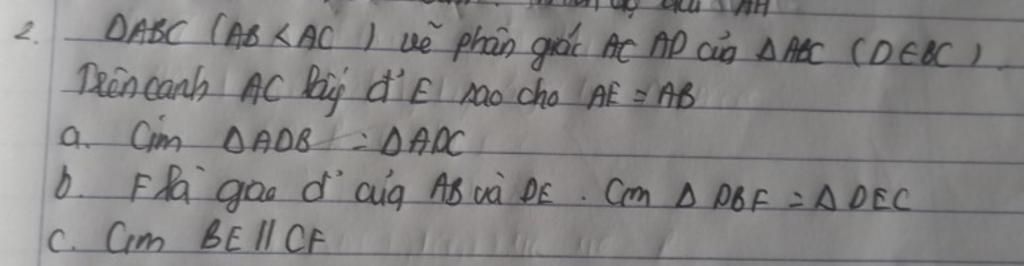 AH
2. ΔABC (AB < AC) vẽ phân giác AC AD của ΔABC (D∈BC).
Trên cạnh AC lấy đ' E sao cho AE = AB
a. Cm ΔADB = ΔADC
b. F là gao đ' của AB và DE. Cm Δ DBF = Δ DEC
c. Cm BE // CF